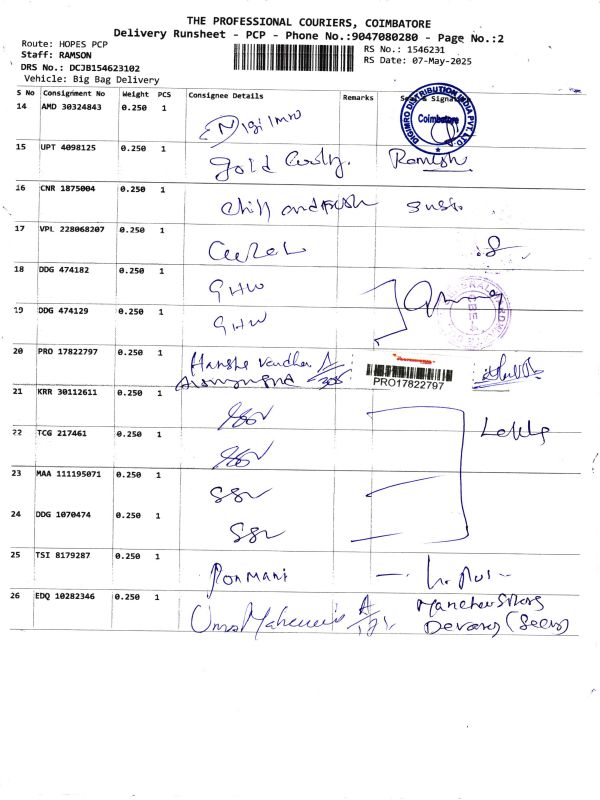 THE PROFESSIONAL COURIERS, COIMBATORE
Delivery Runsheet - PCP - Phone No.:9047080280 - Page No.:2
Route: HOPES PCP
RS No.: 1546231
Staff: RAMSON
RS Date: 07-May-2025
DRS No.: DCJB154623102
Vehicle: Big Bag Delivery
S No Consignment No Weight PCS Consignee Details Remarks Seal & Signature
DIGIMRO DISTRIBUTION INDIA PVT LTD.
Coimbatore
14 AMD 30324843 0.250 1 Digilmro
15 UPT 4098125 0.250 1 Gold Ramesh
16 CNR 1875004 0.250 1 Chill and Fresh
17 VPL 228068207 0.250 1
18 DDG 474182 0.250 1 GHW
19 DDG 474129 0.250 1 GHW
20 PRO 17822797 0.250 1 Harsha
PRO17822797
21 KRR 30112611 0.250 1 SSV
22 TCG 217461 0.250 1 SSV
23 MAA 111195071 0.250 1 SSV
24 DDG 1070474 0.250 1 SSV
25 TSI 8179287 0.250 1 Ponmani
26 EDQ 10282346 0.250 1 Uma